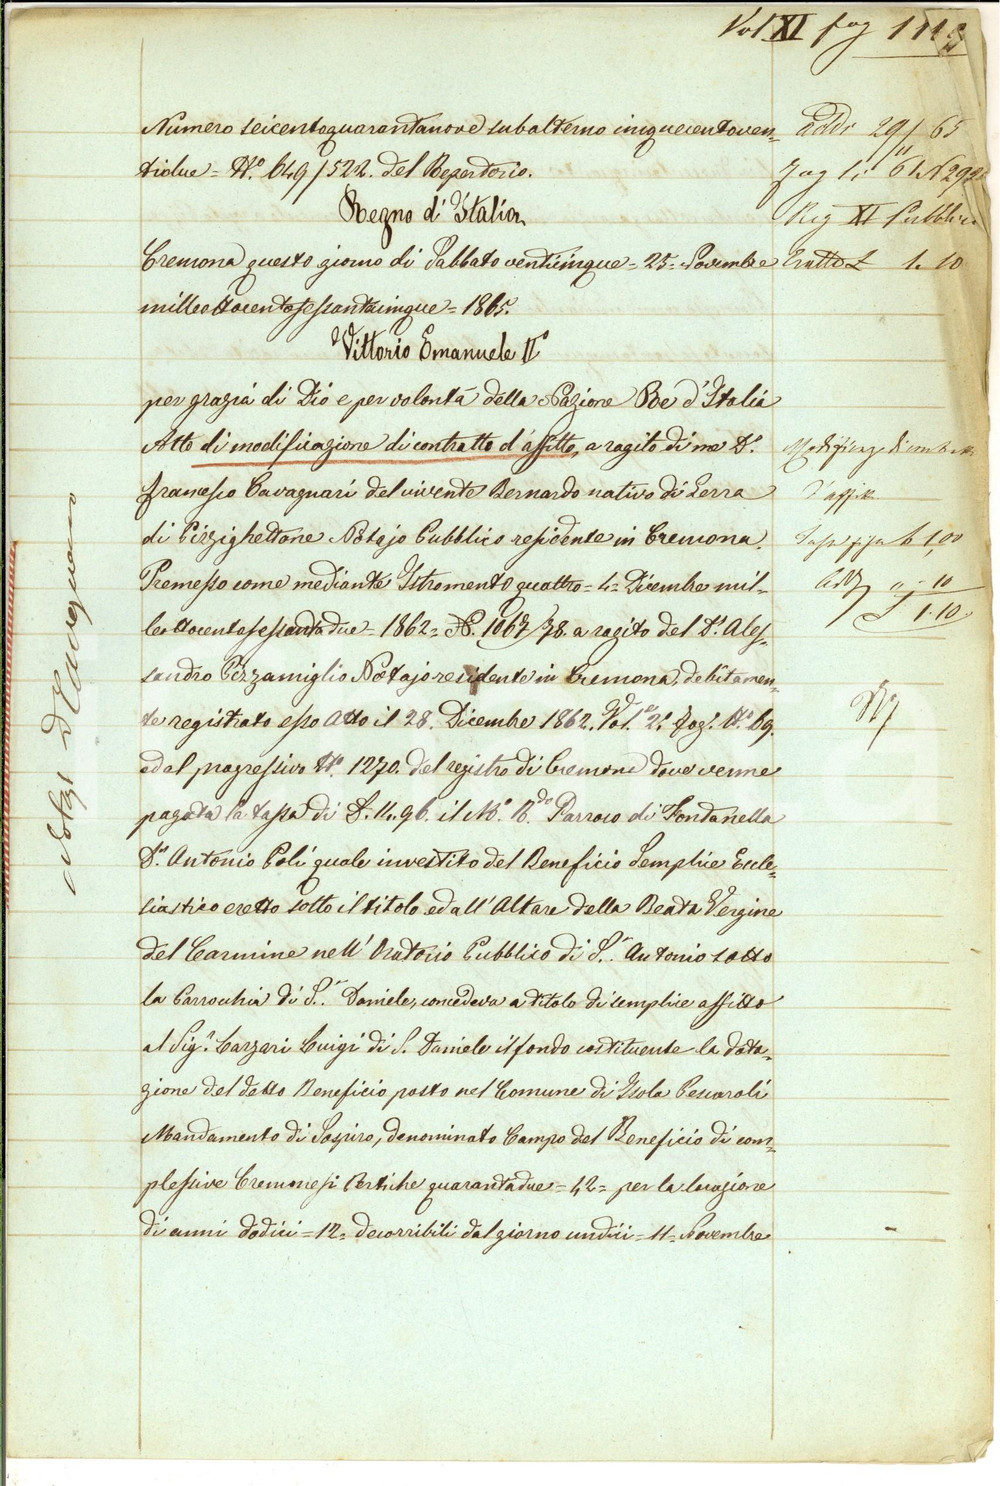 Vol XI fog 111
Numero seicentoquarantanove subalterno cinquecentoven=
tidue = N.° 649/522. del Repertorio.
Regno d'Italia
Cremona questo giorno di Sabbato venticinque = 25 = Novembre
milleottocentosessantacinque = 1865.
Vittorio Emanuele II°
per grazia di Dio e per volontà della Nazione Re d'Italia
Atto di modificazione di contratto d'affitto, a rogito di me D.r
Francesco Cavagnari del vivente Bernardo nativo di Serra
di Pizzighettone Notajo Pubblico residente in Cremona.
Premesso come mediante Istromento quattro = 4 = Dicembre mil=
leottocentosessantadue = 1862 = N. 1067/78. a rogito del D.r Ales=
sandro Pizzamiglio Notajo residente in Cremona, debitamen=
te registrato esso Atto il 28. Dicembre 1862. Vol.° 2.° Fog.° N.° 69.
ed al progressivo N.° 1270. del registro di Cremona dove venne
pagata la tassa di £. 11.96. il M.° R.do Parroco di Fontanella
D.n Antonio Poli quale investito del Beneficio Semplice Eccle=
siastico eretto sotto il titolo ed all'Altare della Beata Vergine
del Carmine nell'Oratorio Pubblico di S.n Antonio sotto
la Parrochia di S.n Daniele, concedeva a titolo di semplice affitto
al Sig.r Carzari Luigi di S. Daniele il fondo costituente la dota=
zione del detto Beneficio posto nel Comune di Isola Pescaroli
Mandamento di Sospiro, denominato Campo del Beneficio di com=
plessive Cremonesi Pertiche quarantadue = 42 = per la locazione
di anni dodici = 12 = decorribili dal giorno undici = 11 = Novembre
Addì 29/11 65
Reg XI Pubblici
Esatto £ 1. 10
Modificaz di contratto
d'affitto
Tassa fissa £ 1,00
Add " - 10
£ 1.10
Notaj D. Cavagnari